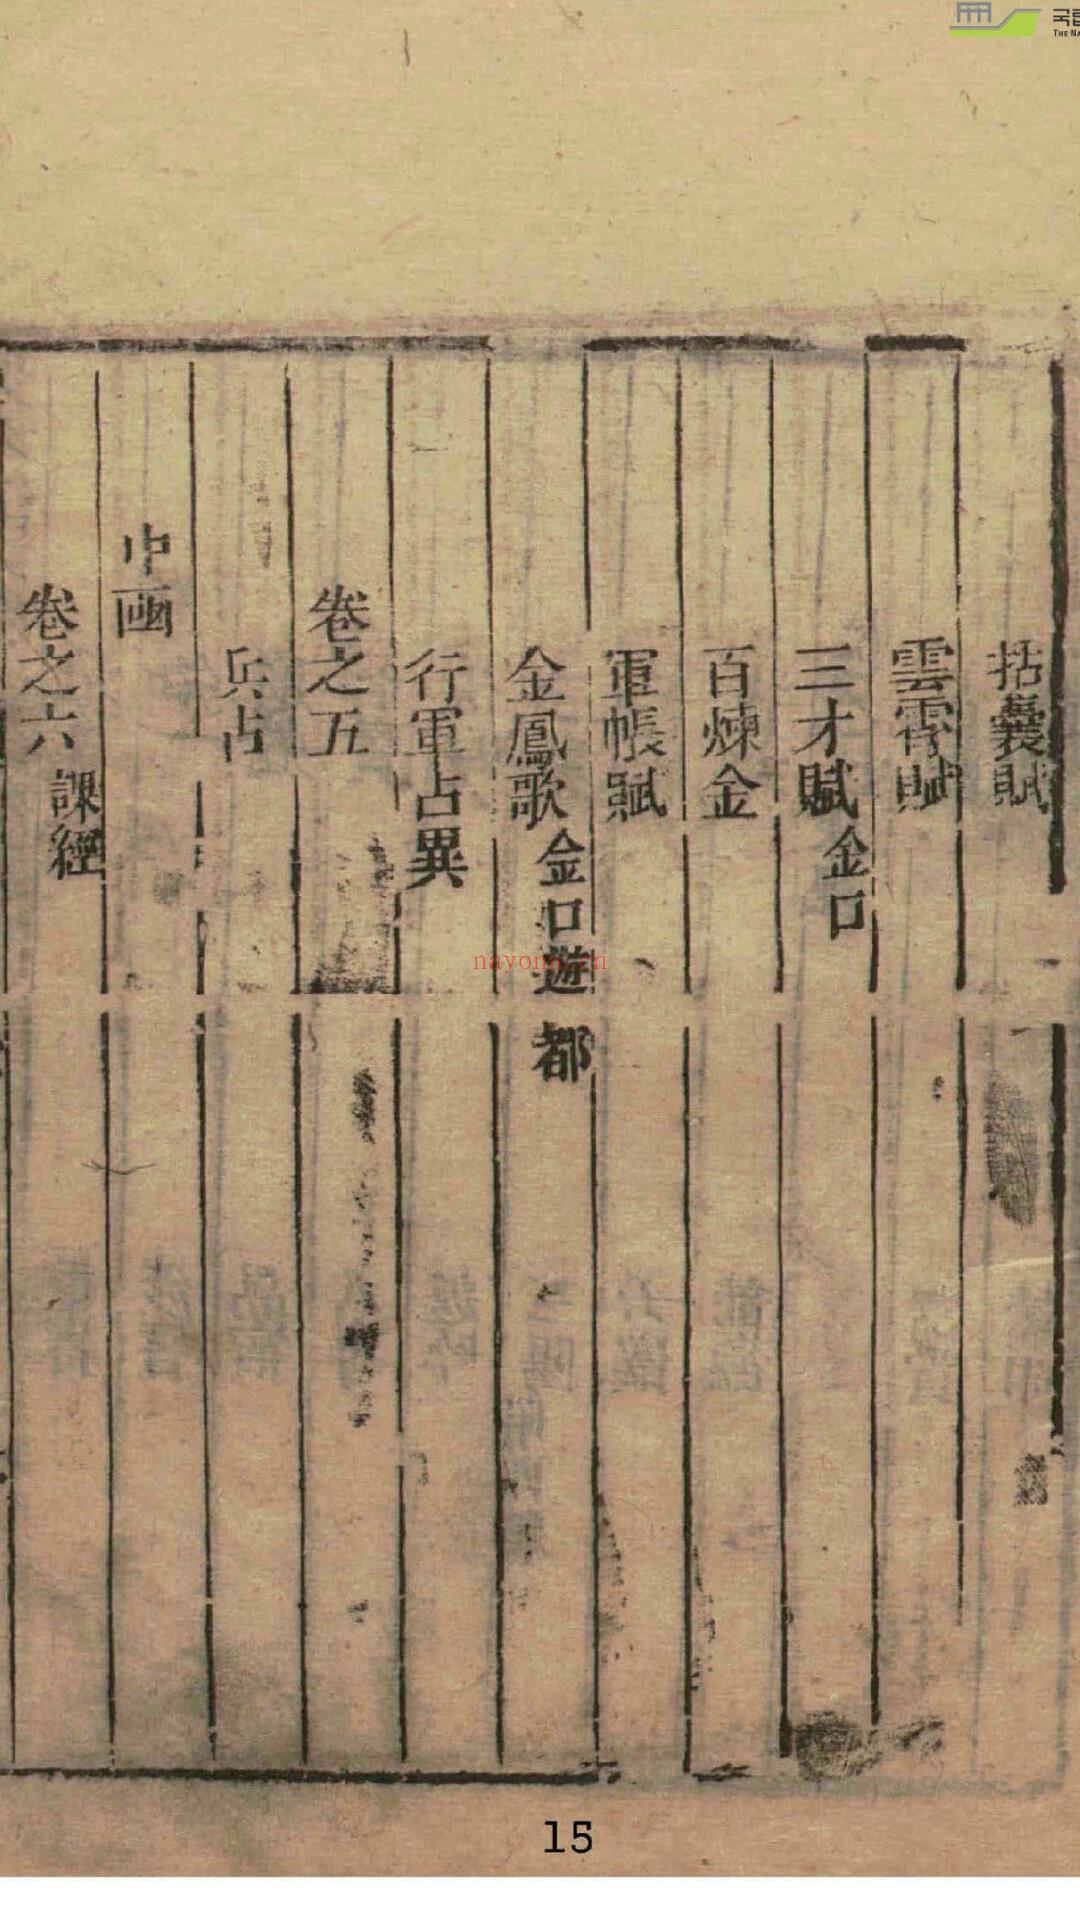 括囊賦
雲霄賦
三才賦 金口
百煉金
軍帳賦
金鳳歌 金口遊都
行軍占異
卷之五
兵占
中函
卷之六 課經
nayona.cn
국립
THE NA
15